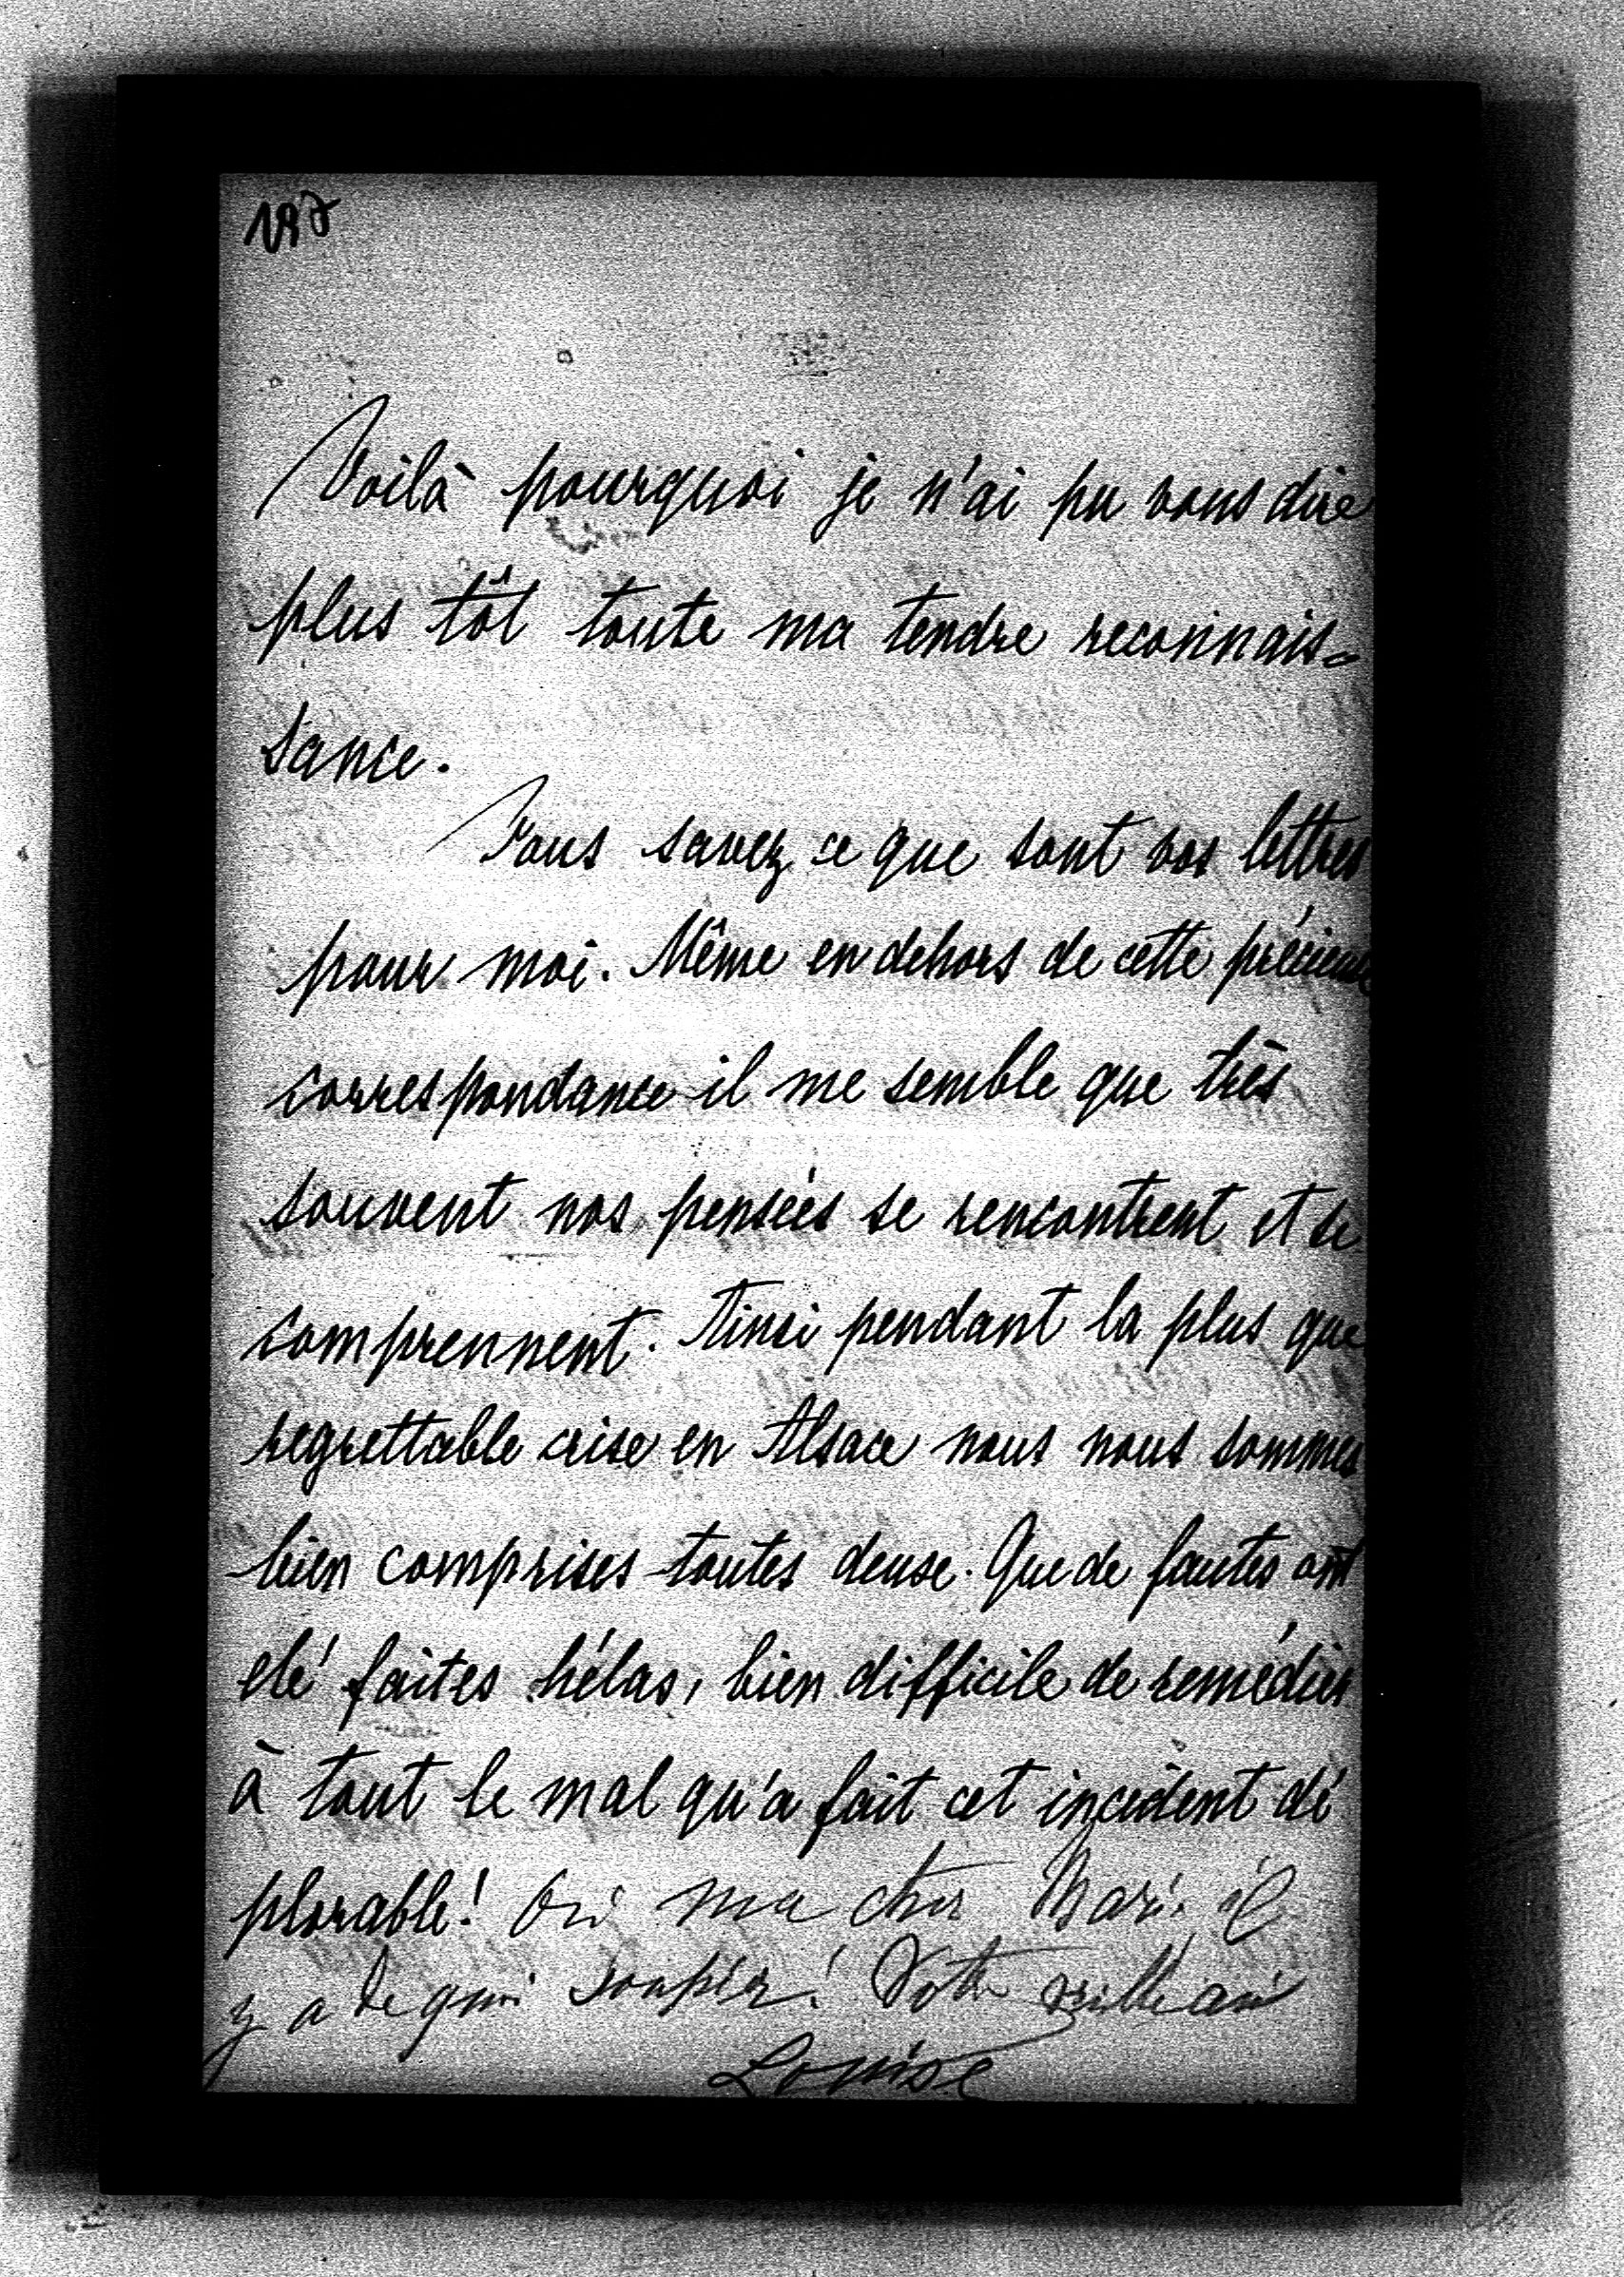 197
Voilà pourquoi je n'ai pu vous dire
plus tôt toute ma tendre reconnais=
sance.
Vous savez ce que sont vos lettres
pour moi. Même en dehors de cette précieuse
correspondance il me semble que très
souvent nos pensées se rencontrent et se
comprennent. Ainsi pendant la plus que
regrettable crise en Alsace nous nous sommes
bien comprises toutes deuse. Que de fautes ont
été faites hélas, bien difficile de remédier
à tout le mal qu'a fait cet incident dé
plorable! Oui ma cher Marie il
y a de quoi soupirer! Votre vieille amie
Louise